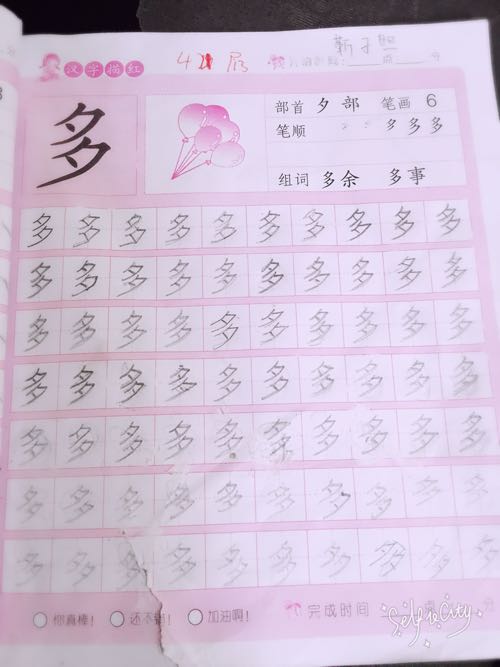 汉字描红
多
部首 夕 部 笔画 6
笔顺 多 多 多
组词 多余 多事
多 多 多 多 多 多 多 多 多 多
多 多 多 多 多 多 多 多 多 多
多 多 多 多 多 多 多 多 多 多
多 多 多 多 多 多 多 多 多 多
多 多 多 多 多 多 多 多 多 多
多 多 多 多 多 多 多 多 多 多
多 多 多 多 多 多 多 多 多 多
你真棒! 还不错! 加油啊! 完成时间 分
Selfie City